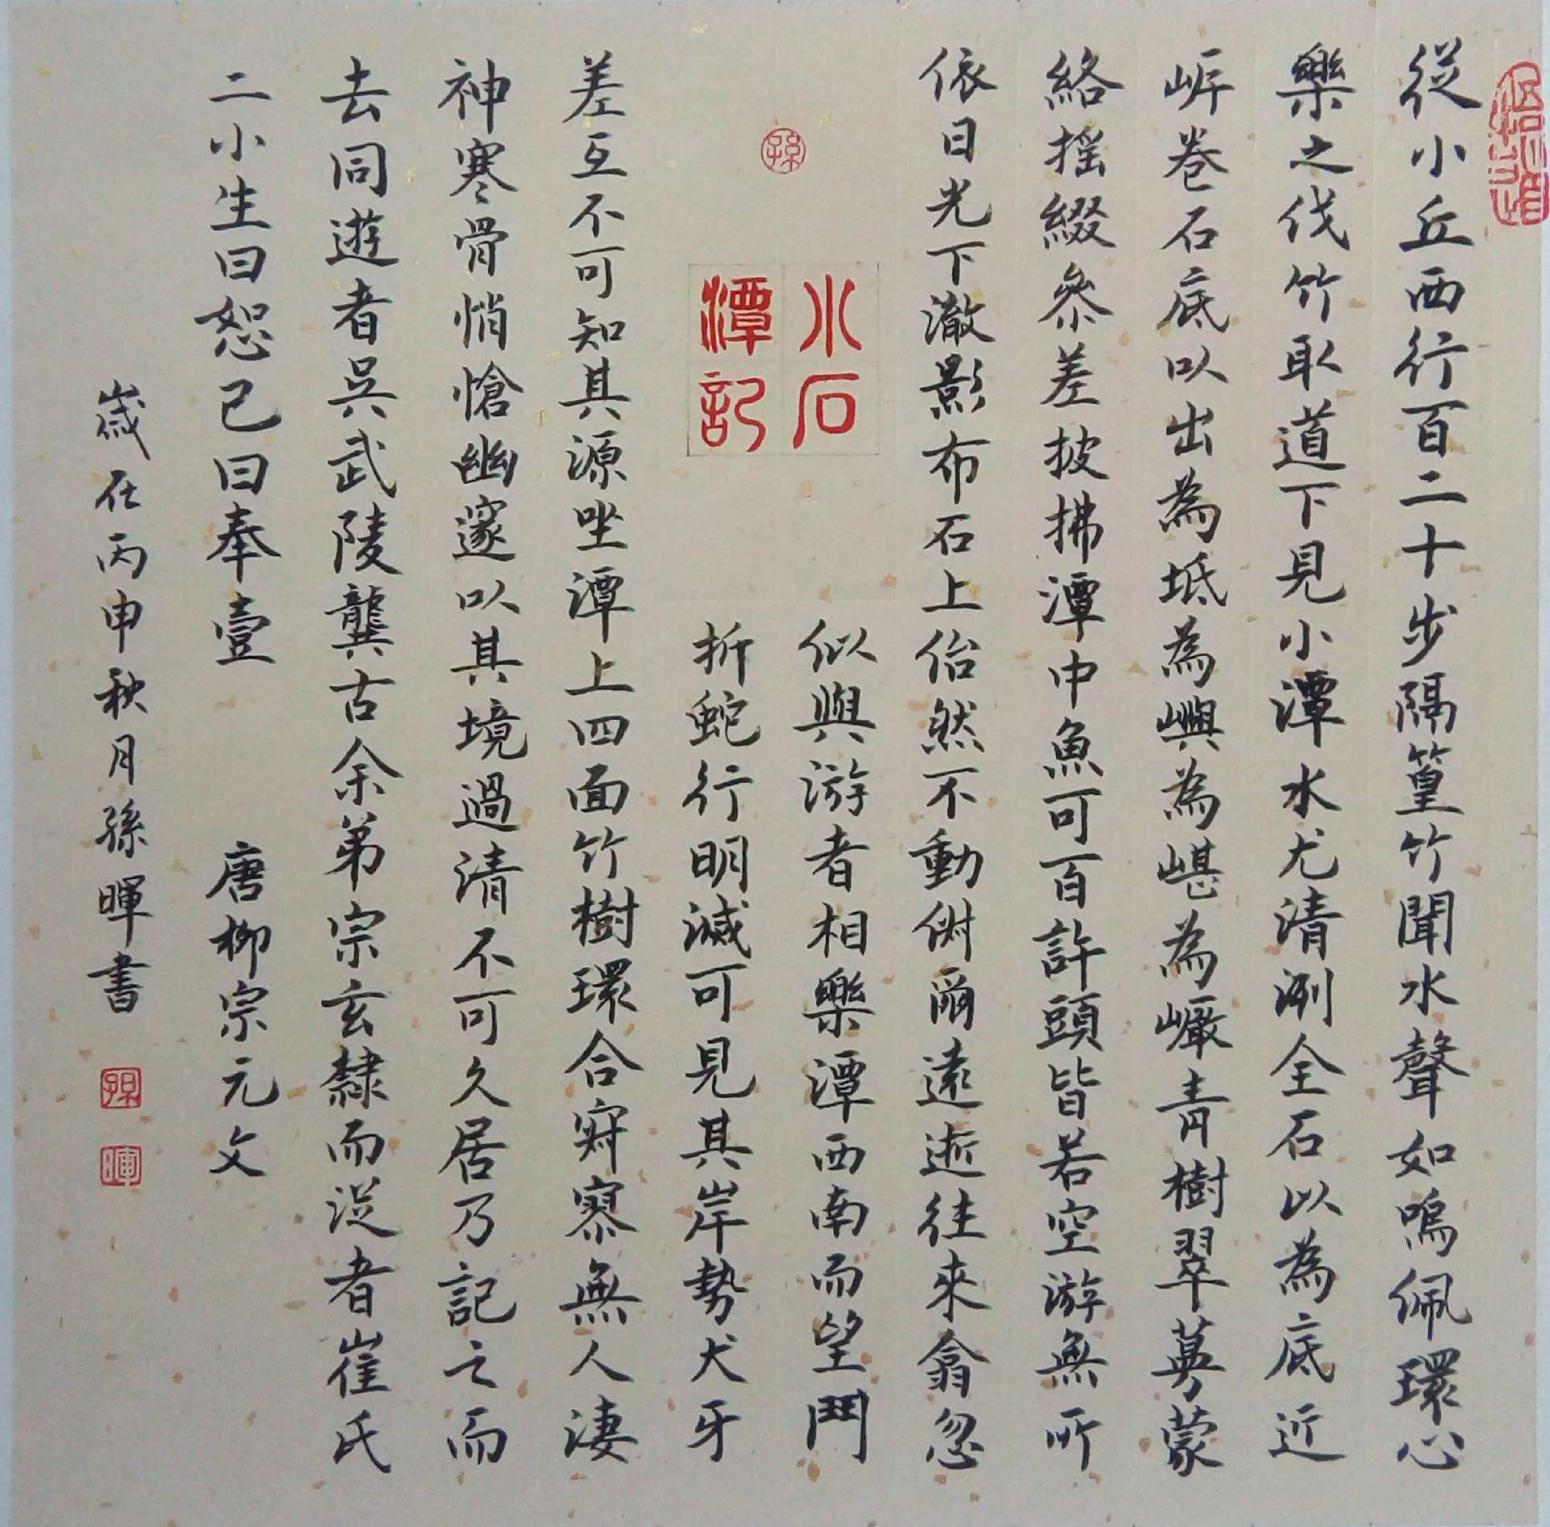 從小丘西行百二十步隔篁竹聞水聲如鳴佩環心
樂之伐竹取道下見小潭水尤清洌全石以為底近
岸卷石底以出為坻為嶼為嵁為巖青樹翠蔓蒙
絡搖綴參差披拂潭中魚可百許頭皆若空游無所
依日光下澈影布石上佁然不動俶爾遠逝往來翕忽
孫
小石
潭記
似與游者相樂潭西南而望鬥
折蛇行明滅可見其岸勢犬牙
差互不可知其源坐潭上四面竹樹環合寂寥無人淒
神寒骨悄愴幽邃以其境過清不可久居乃記之而
去同遊者吳武陵龔古余弟宗玄隸而從者崔氏
二小生曰恕己曰奉壹 唐柳宗元文
歲在丙申秋月孫暉書
孫
暉